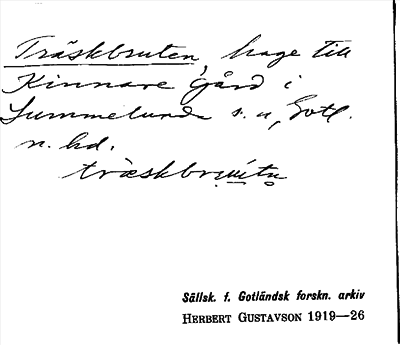 Träskbruten, hage till
Kinnare gård i
Lummelunda s.n., Gotl.
n. hd.
träskbruitn̥
Sällsk. f. Gotländsk forskn. arkiv
HERBERT GUSTAVSON 1919—26